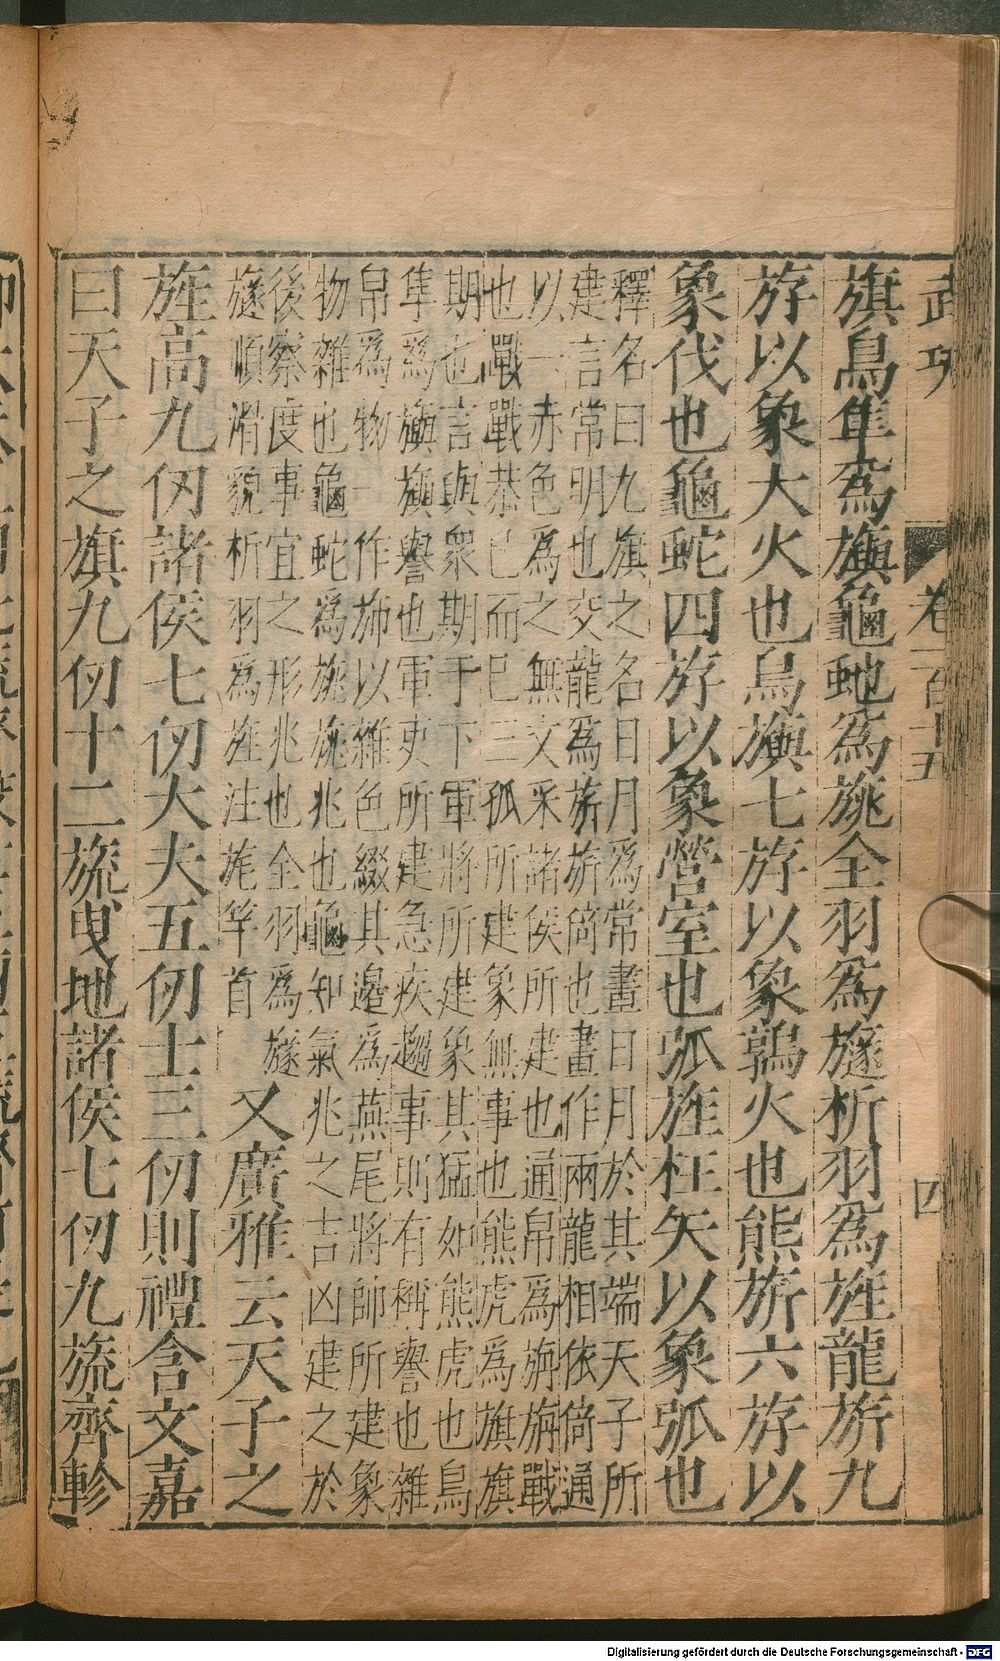 武功
卷一百十五
四
旗鳥隼爲旟龜蛇爲旐全羽爲旞析羽爲旌龍旂九
斿以象大火也鳥旟七斿以象鶉火也熊旂六斿以
象伐也龜蛇四斿以象營室也弧旌枉矢以象弧也
釋名曰九旗之名日月爲常畫日月於其端天子所
建言常明也交龍爲旂旂倚也畫作兩龍相依倚通
以一赤色爲之無文采諸侯所建也通帛爲旃旃戰
也戰戰恭己而已三孤所建象無事也熊虎爲旗旗
期也言與衆期于下軍將所建象其猛如熊虎也鳥
隼爲旟旟譽也軍吏所建急疾趨事則有稱譽也雜
帛爲物一作斾以雜色綴其邊爲燕尾將帥所建象
物雜也龜蛇爲旐旐兆也龜知氣兆之吉凶建之於
後察度事宜之形兆也全羽爲旞
旞順滑貌析羽爲旌注旄竿首
又廣雅云天子之
旌高九仞諸侯七仞大夫五仞士三仞則禮含文嘉
曰天子之旗九仞十二旒曳地諸侯七仞九旒齊軫
Digitalisierung gefördert durch die Deutsche Forschungsgemeinschaft - DFG